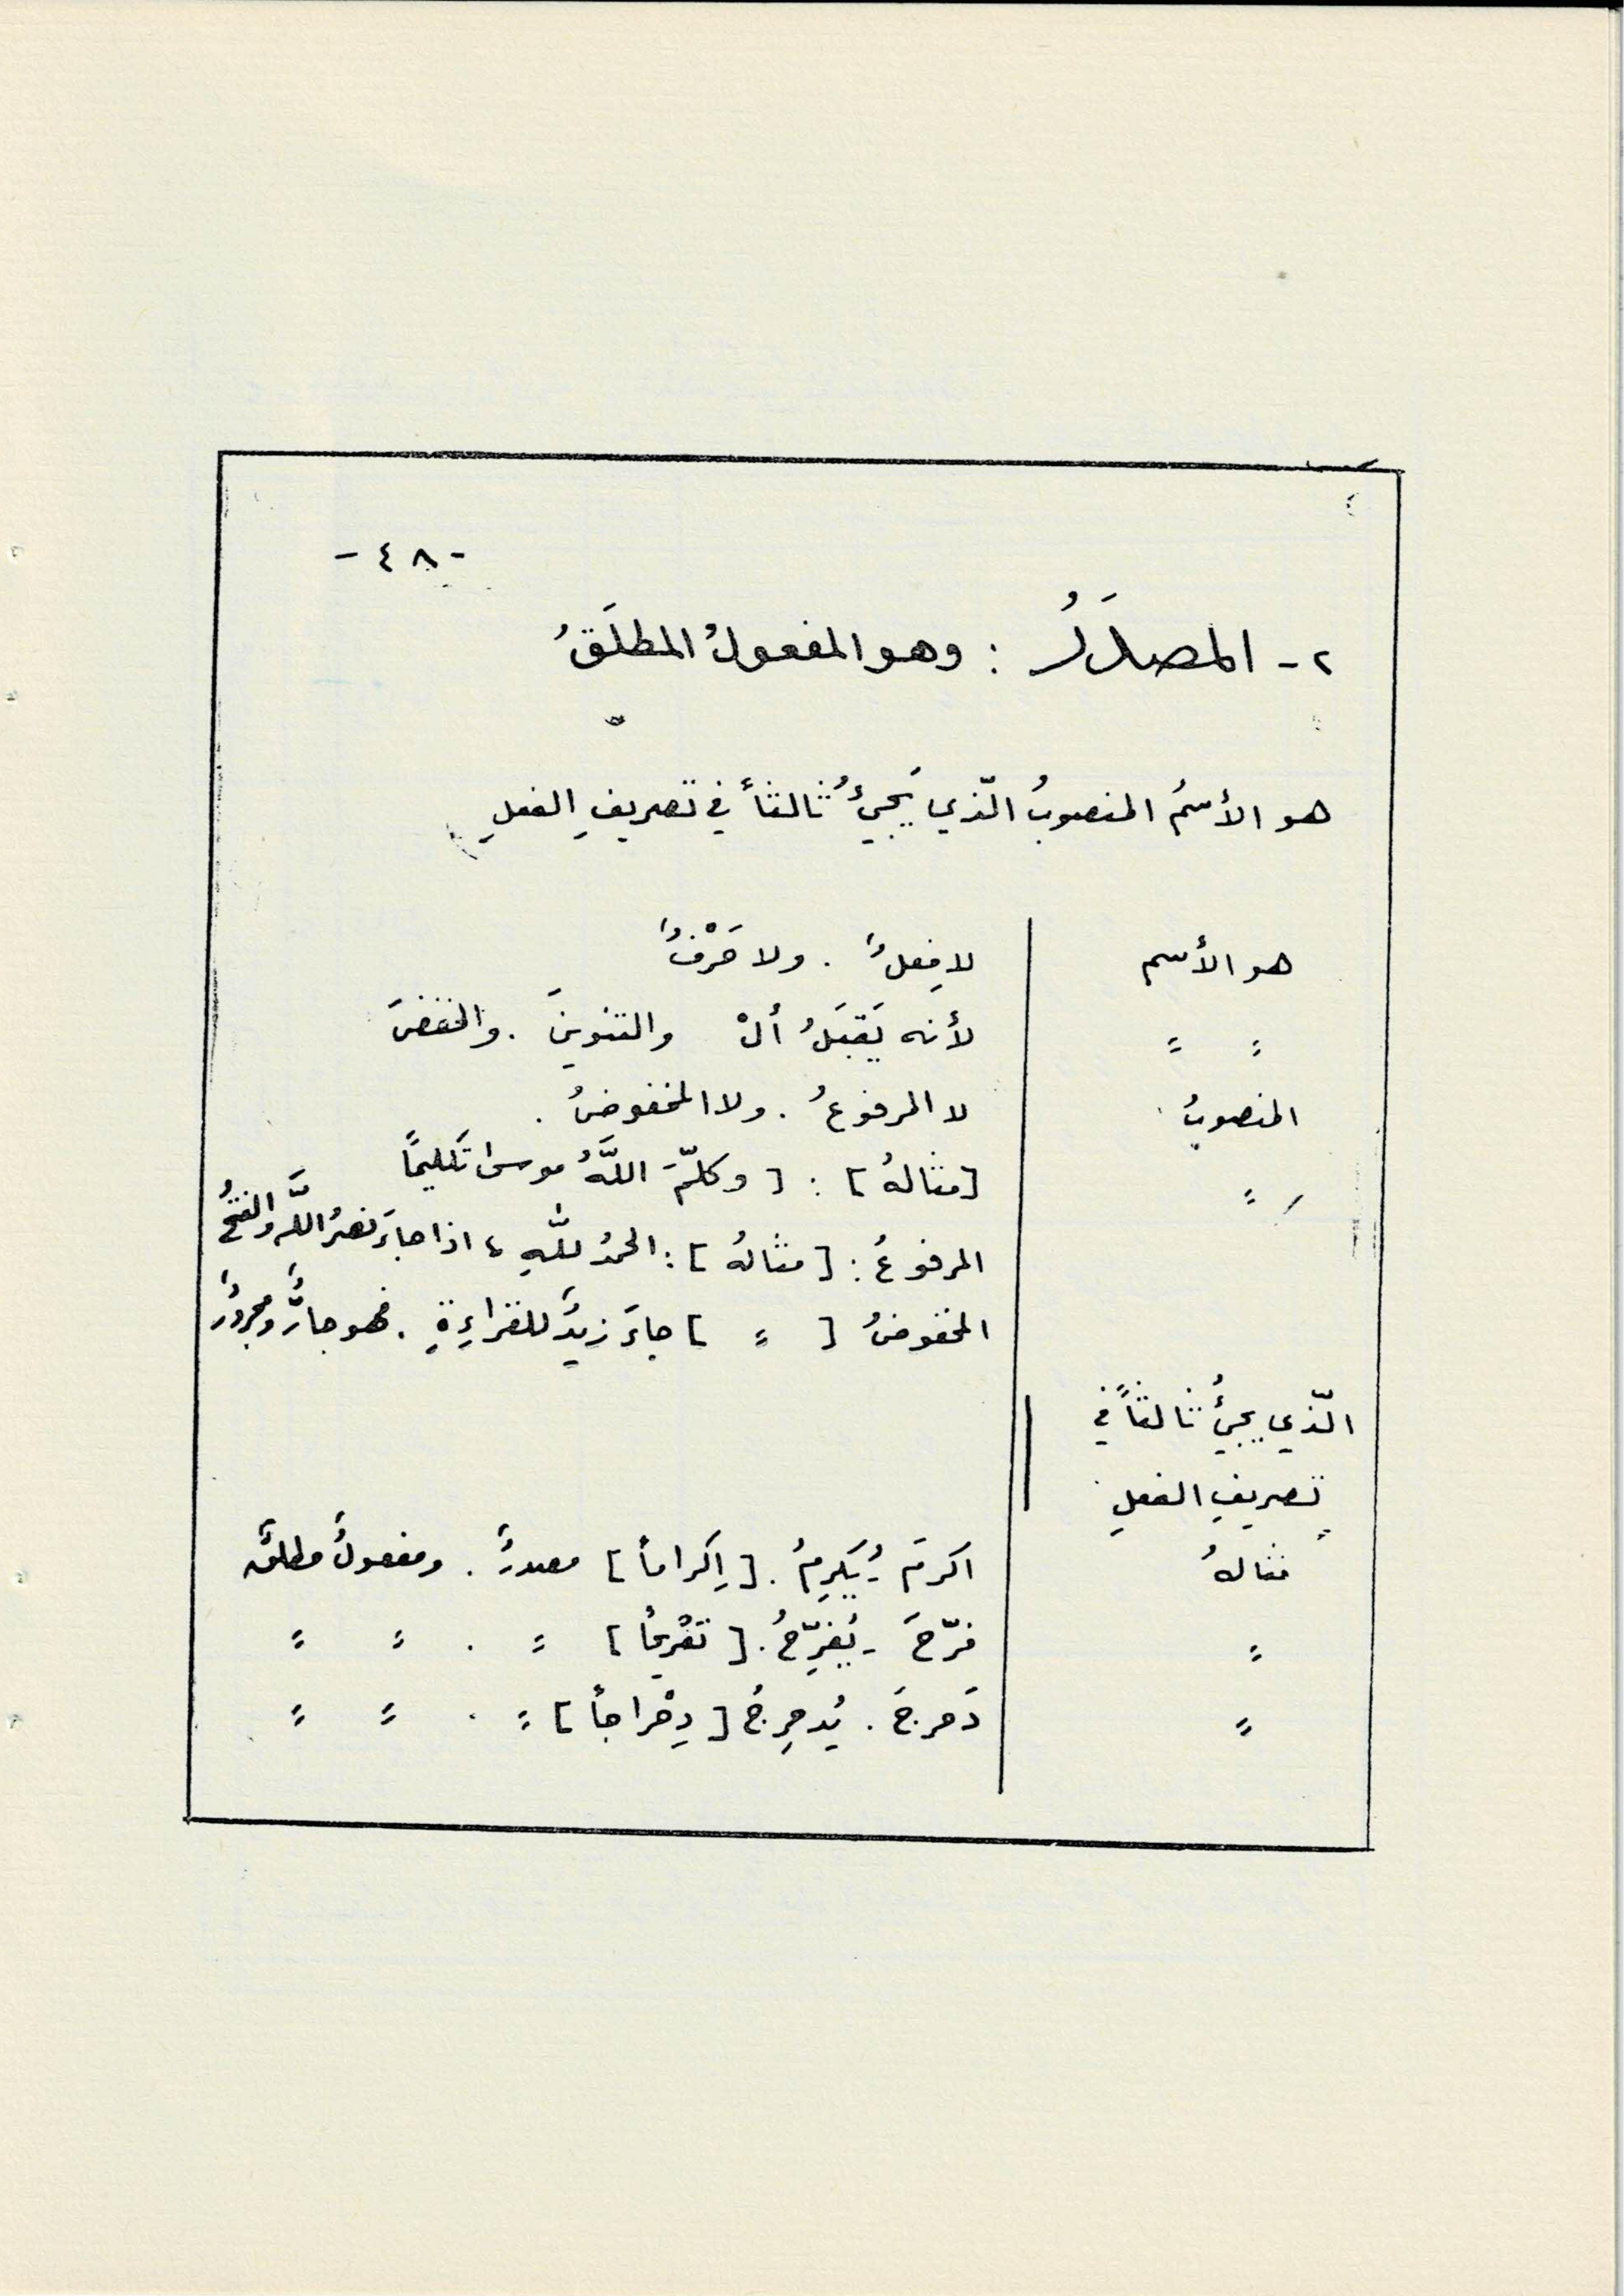 - ٤٨ -
٢ - المصدَرُ : وهو المفعولُ المطلَقُ
هو الأسمُ المنصوبُ الّذي يَجئُ ثالثاً في تصريفِ الفعلِ
هو الأسم | لا فِعلٌ . ولا حَرْفٌ
〃 〃 | لأنه يَقبَلُ ألْ والتنوينَ . والخفضَ
المنصوبُ | لا المرفوعُ . ولا المخفوضُ .
〃 | [مثالهُ] : [ وكلّمَ اللَّهُ موسىٰ تَكليمًا
المرفوعُ : [مثالهُ] : الحمدُ للّٰهِ ، اذا جاءَ نصرُ اللَّه والفتحُ
المخفوضُ [ 〃 ] جاءَ زيدٌ للقراءِةِ . فهو جارٌّ ومجرورٌ
الّذي يجئُ ثالثاً في
تصريفِ الفعلِ
مثالهُ | اكرمَ - يُكرِمُ . [ اِكراماً ] مصدرٌ . ومفعولٌ مطلقٌ
〃 | فرّحَ - يُفرِّحُ . [ تفْريحاً ] 〃 . 〃 〃
〃 | دَحرجَ . يُدحرِجُ [ دِحْراجاً ] 〃 . 〃 〃